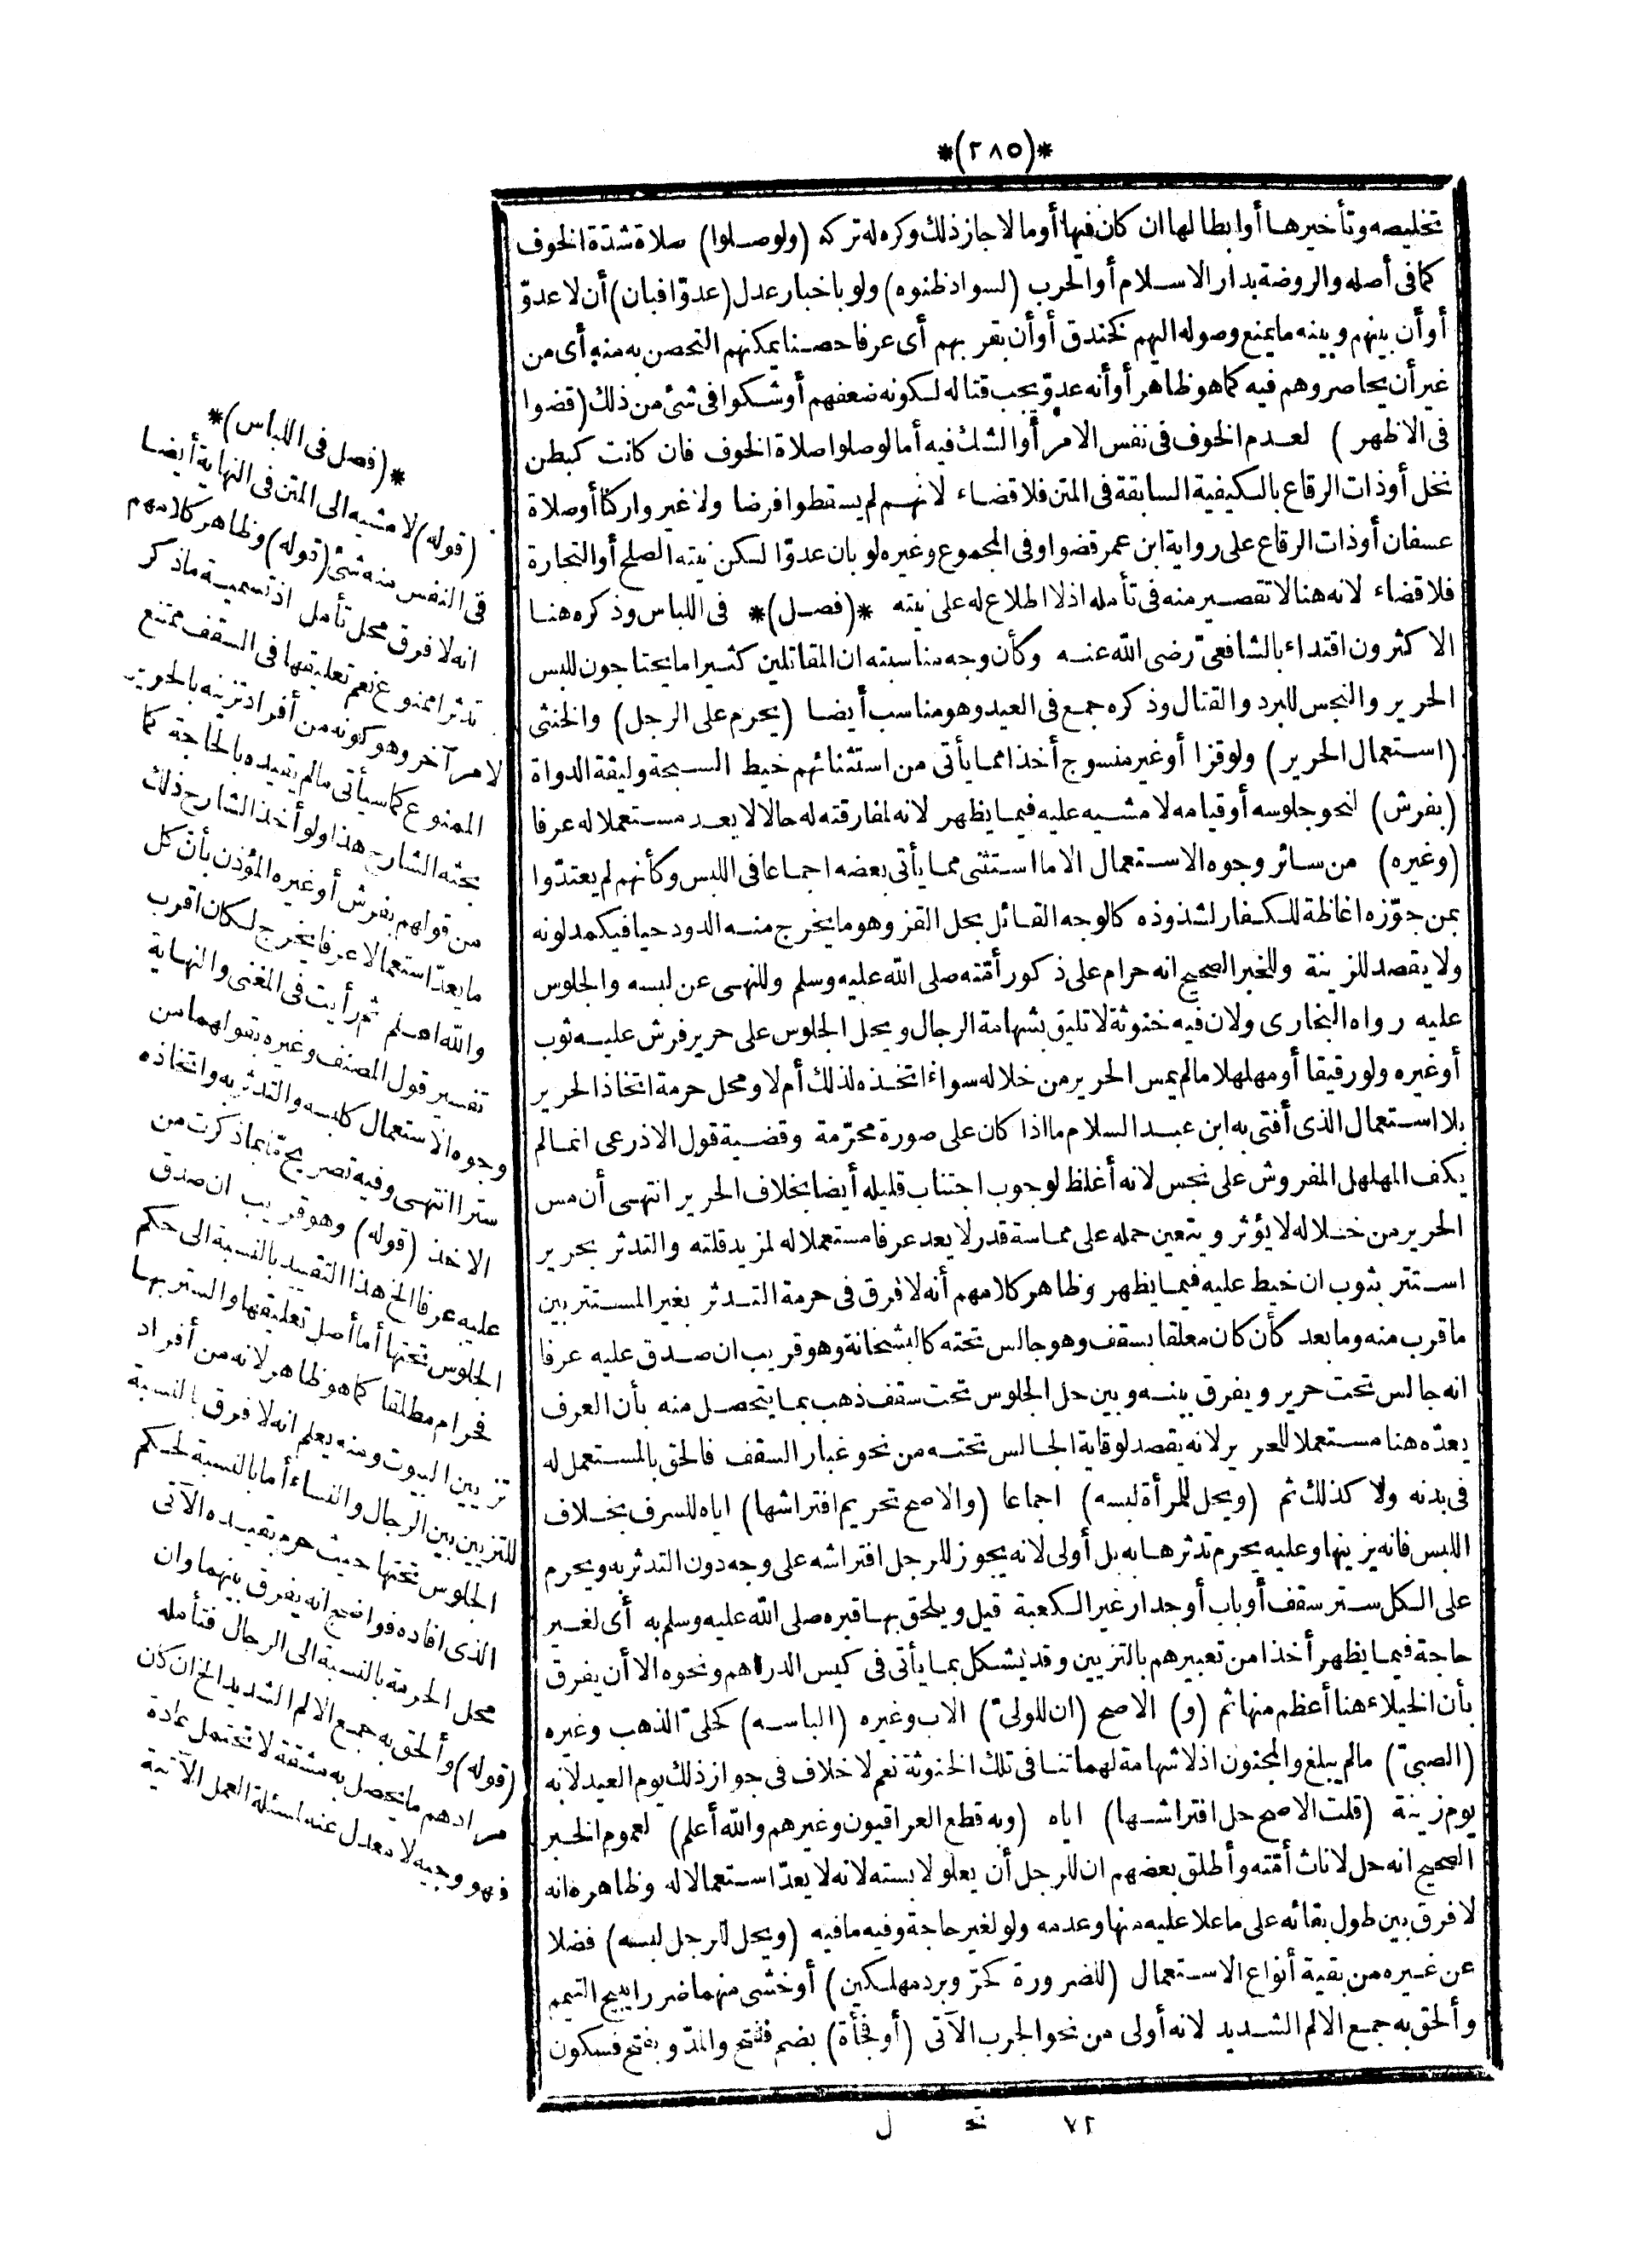 *(٢٨٥)*
تخليصه وتأخيرها أوابطالها ان كان فيها أومالاجاز ذلك وكره له تركه (ولوصلوا) صلاة شدّة الخوف
كما فى أصله والروضة بدار الاسلام أوالحرب (لسواد ظنوه) ولو باخبار عدل (عدوّا فبان) أن لا عدوّ
أوأن بينهم وبينه ما يمنع وصوله اليهم كخندق أوأن بقربهم أى عرفا حصنا يمكنهم التحصن به منه أى من
غير أن يحاصروهم فيه كما هو ظاهر أوأنه عدوّ يجب قتاله لكونه ضعفهم أوشكوا فى شئ من ذلك (قضوا
فى الاظهر) لعدم الخوف فى نفس الامر أوالشك فيه أما لوصلوا صلاة الخوف فان كانت كبطن
نخل أوذات الرقاع بالكيفية السابقة فى المتن فلا قضاء لانهم لم يسقطوا فرضا ولا غيروا ركنا أوصلاة
عسفان أوذات الرقاع على رواية ابن عمر قضوا وفى المجموع وغيره لو بان عدوّا لكن نيته الصلح أوالتجارة
فلا قضاء لانه هنا لا تقصير منه فى تأمله اذلا اطلاع له على نيته *(فصل)* فى اللباس وذكره هنا
الاكثرون اقتداء بالشافعىّ رضى الله عنه وكأن وجه مناسبته ان المقاتلين كثيرا ما يحتاجون للبس
الحرير والنجس للبرد والقتال وذكره جمع فى العيد وهو مناسب أيضا (يحرم على الرجل) والخنثى
(استعمال الحرير) ولوقزا أوغير منسوج أخذا مما يأتى من استثنائهم خيط السبحة وليقة الدواة
(بفرش) لنحو جلوسه أوقيامه لا مشيه عليه فيما يظهر لانه لمفارقته له حالا لا يعد مستعملا له عرفا
(وغيره) من سائر وجوه الاستعمال الا ما استثنى مما يأتى بعضه اجماعا فى اللبس وكأنهم لم يعتدّوا
بمن جوّزه اغاظة للكفار لشذوذه كالوجه القائل بحل القز وهو ما يخرج منه الدود حيا فيكمد لونه
ولا يقصد للزينة وللخبر الصحيح انه حرام على ذكور أمّته صلى الله عليه وسلم وللنهى عن لبسه والجلوس
عليه رواه البخارى ولان فيه خنوثة لا تليق بشهامة الرجال ويحل الجلوس على حرير فرش عليه ثوب
أوغيره ولورقيقا أومهلهلا مالم يمس الحرير من خلاله سواء اتخذه لذلك أم لا ومحل حرمة اتخاذ الحرير
بلا استعمال الذى أفتى به ابن عبد السلام ما اذا كان على صورة محرّمة وقضية قول الاذرعى انما لم
يكف المهلهل المفروش على نجس لانه أغلظ لوجوب اجتناب قليله أيضا بخلاف الحرير انتهى أن مس
الحرير من خلاله لا يؤثر ويتعين حمله على مماسة قدر لا يعد عرفا مستعملا له لمزيد قلته والتدثر بحرير
استتر بثوب ان خيط عليه فيما يظهر وظاهر كلامهم أنه لا فرق فى حرمة التدثر بغير المستتر بين
ما قرب منه وما بعد كأن كان معلقا بسقف وهو جالس تحته كالبشخانة وهو قريب ان صدق عليه عرفا
انه جالس تحت حرير ويفرق بينه وبين حل الجلوس تحت سقف ذهب بما يتحصل منه بأن العرف
يعدّه هنا مستعملا للحرير لانه يقصد لوقاية الجالس تحته من نحو غبار السقف فالحق بالمستعمل له
فى بدنه ولا كذلك ثم (ويحل للمرأة لبسه) اجماعا (والاصح تحريم افتراشها) اياه للسرف بخلاف
اللبس فانه يزينها وعليه يحرم تدثرها به بل أولى لانه يجوز للرجل افتراشه على وجه دون التدثر به ويحرم
على الكل ستر سقف أوباب أوجدار غير الكعبة قيل ويلحق بها قبره صلى الله عليه وسلم به أى لغير
حاجة فيما يظهر أخذا من تعبيرهم بالتزيين وقد يشكل بما يأتى فى كيس الدراهم ونحوه الا أن يفرق
بأن الخيلاء هنا أعظم منها ثم (و) الاصح (ان للولىّ) الاب وغيره (الباسه) كحلىّ الذهب وغيره
(الصبىّ) مالم يبلغ والمجنون اذلا شهامة لهما تنافى تلك الخنوثة نعم لا خلاف فى جواز ذلك يوم العيد لانه
يوم زينة (قلت الاصح حل افتراشها) اياه (وبه قطع العراقيون وغيرهم والله أعلم) لعموم الخبر
الصحيح انه حل لاناث أمّته وأطلق بعضهم ان للرجل أن يعلو لابسته لانه لا يعدّ استعمالا له وظاهره انه
لا فرق بين طول بقائه على ما علا عليه منها وعدمه ولو لغير حاجة وفيه ما فيه (ويحل للرجل لبسه) فضلا
عن غيره من بقية أنواع الاستعمال (للضرورة كحرّ وبرد مهلكين) أوخشى منهما ضررا يبيح التيمم
وألحق به جمع الالم الشديد لانه أولى من نحو الجرب الآتى (أوفجأة) بضم ففتح والمدّ وبفتح فسكون
*(فصل فى اللباس)*
(قوله) لا مشيه الى المتن فى النهاية أيضا
فى النفس منه شئ (قوله) وظاهر كلامهم
انه لا فرق محل تأمل اذ تسمية ما ذكر
تدثرا ممنوع نعم تعليقها فى السقف ممتنع
لامر آخر وهو كونه من أفراد تزيينه بالحرير
الممنوع كما سيأتى مالم يقيده بالحاجة كما
بحثه الشارح هذا ولو أخذ الشارح ذلك
من قولهم بفرش أوغيره المؤذن بأن كل
ما يعدّ استعمالا عرفا يخرج لكان اقرب
والله اعلم ثم رأيت فى المغنى والنهاية
تفسير قول المصنف وغيره بقولهما من
وجوه الاستعمال كلبسه والتدثر به واتخاذه
سترا انتهى وفيه تصريح تمّا بما ذكرت من
الاخذ (قوله) وهو قريب ان صدق
عليه عرفا الخ هذا التقييد بالنسبة الى حكم
الجلوس تحتها أما أصل تعليقها والستر بها
فحرام مطلقا كما هو ظاهر لانه من أفراد
تزيين البيوت ومنه يعلم انه لا فرق بالنسبة
للتزيين بين الرجال والنساء أما بالنسبة لحكم
الجلوس تحتها حيث حرم بقيده الآتى
الذى افاده فواضح انه يفرق بينهما وان
محل الحرمة بالنسبة الى الرجال فتأمله
(قوله) وألحق به جمع الالم الشديد الخ ان كان
مرادهم ما يحصل به مشقة لا تحتمل عادة
فهو وجيه لا معدل عنه لمسئلة القمل الآتية
٧٢ تحـ ل